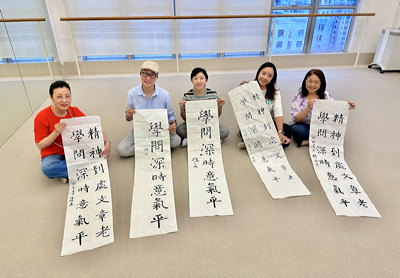 精神到處文章老
學問深時意氣平
學問深時意氣平
學問深時意氣平
精神到處文章老
學問深時意氣平
精神到處文章老
學問深時意氣平